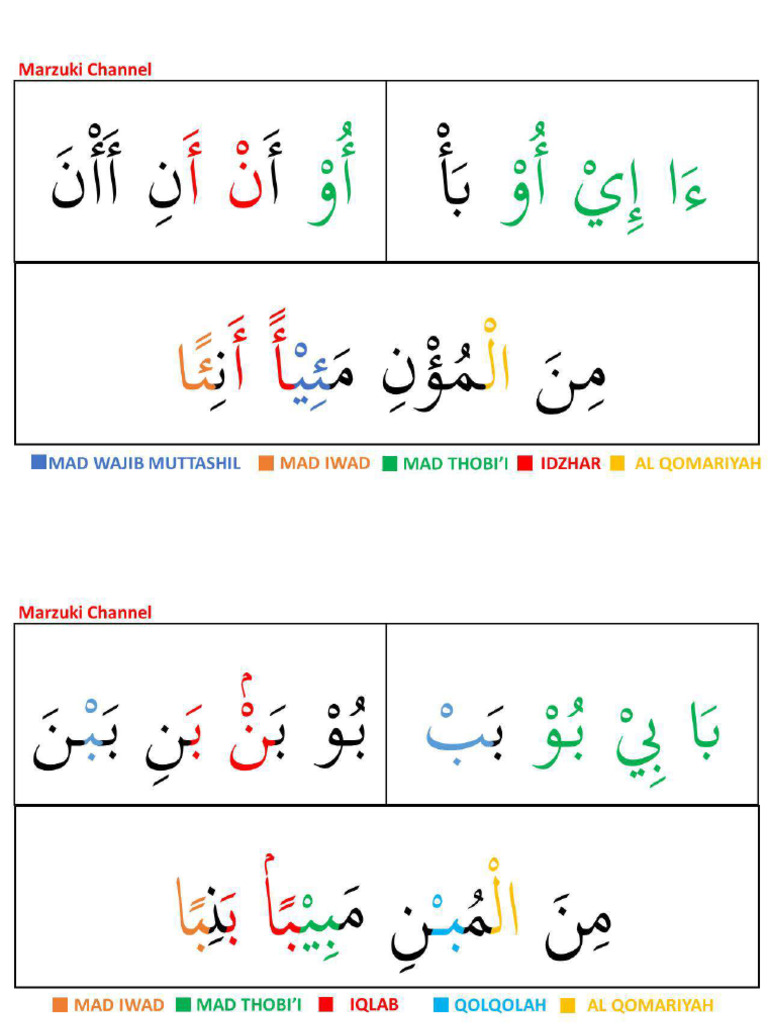 Marzuki Channel
ءَا إِيْ أُوْ بَأْ
أُوْ أَنْ أَنِ أَأْنَ
مِنَ الْمُؤْنِ مَئِيْأً أَنِئًا
MAD WAJIB MUTTASHIL MAD IWAD MAD THOBI'I IDZHAR AL QOMARIYAH
Marzuki Channel
بَا بِيْ بُوْ بَبْ
بُوْ بَنْۢ بَنِ بَبْنَ
مِنَ الْمُبْنِ مَبِيْبًاۢ بَنِبًا
MAD IWAD MAD THOBI'I IQLAB QOLQOLAH AL QOMARIYAH